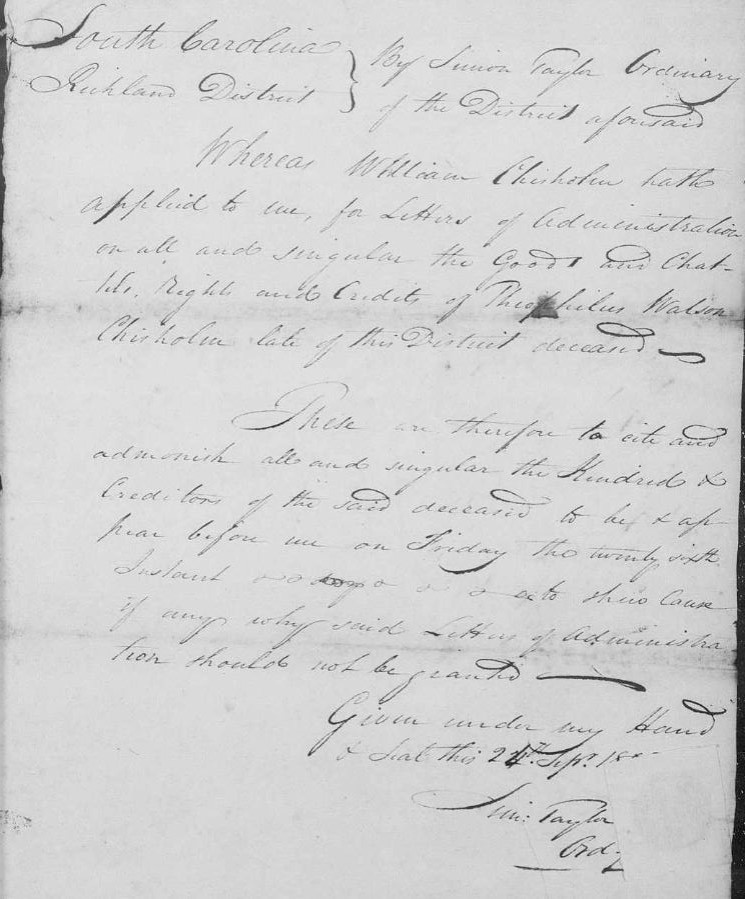 South Carolina } By Simon Taylor Ordinary
Richland District } of the District aforesaid
Whereas William Chisholm hath
applied to me, for Letters of Administration
on all and singular the Goods and Chat-
tles, Right and Credits of Theophilus Watson
Chisholm late of this District deceased
These are therefore to cite and
admonish all and singular the Kindred &
Creditors of the said deceased to be & ap-
pear before me on Friday the twenty sixth
Instant to shew Cause
if any why said Letters of Administra
tion should not be granted
Given under my Hand
& Seal this 24th Sepr. 18
Sim: Taylor
Ordy